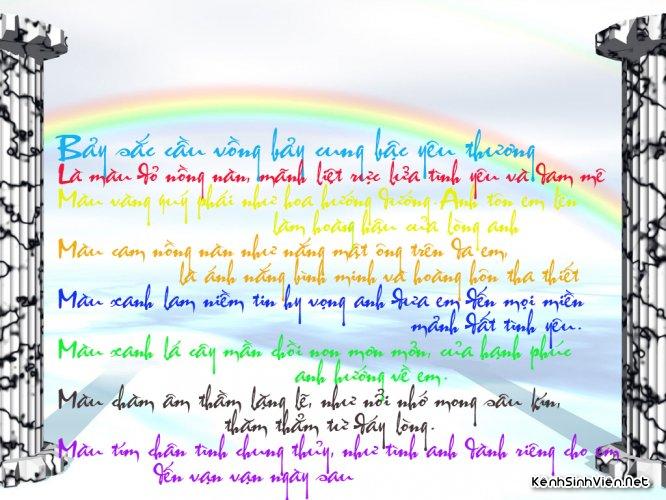 Bảy sắc cầu vồng bảy cung bậc yêu thương
Là màu đỏ nồng nàn, mãnh liệt rực lửa tình yêu và đam mê
Màu vàng quý phái như hoa hướng dương. Anh tôn em lên
làm hoàng hậu của lòng anh
Màu cam nồng nàn như nắng mật ông trên da em,
là ánh nắng bình minh và hoàng hôn tha thiết
Màu xanh lam niềm tin hy vọng anh đưa em đến mọi miền
mảnh đất tình yêu.
Màu xanh lá cây mần chồi non mơn mởn, của hạnh phúc
anh hướng về em.
Màu chàm âm thầm lặng lẽ, như nỗi nhớ mong sâu kín,
thăm thẳm từ đáy lòng.
Màu tím chân tình chung thủy, như tình anh dành riêng cho em
đến vạn vạn ngày sau
KenhSinhVien.Net